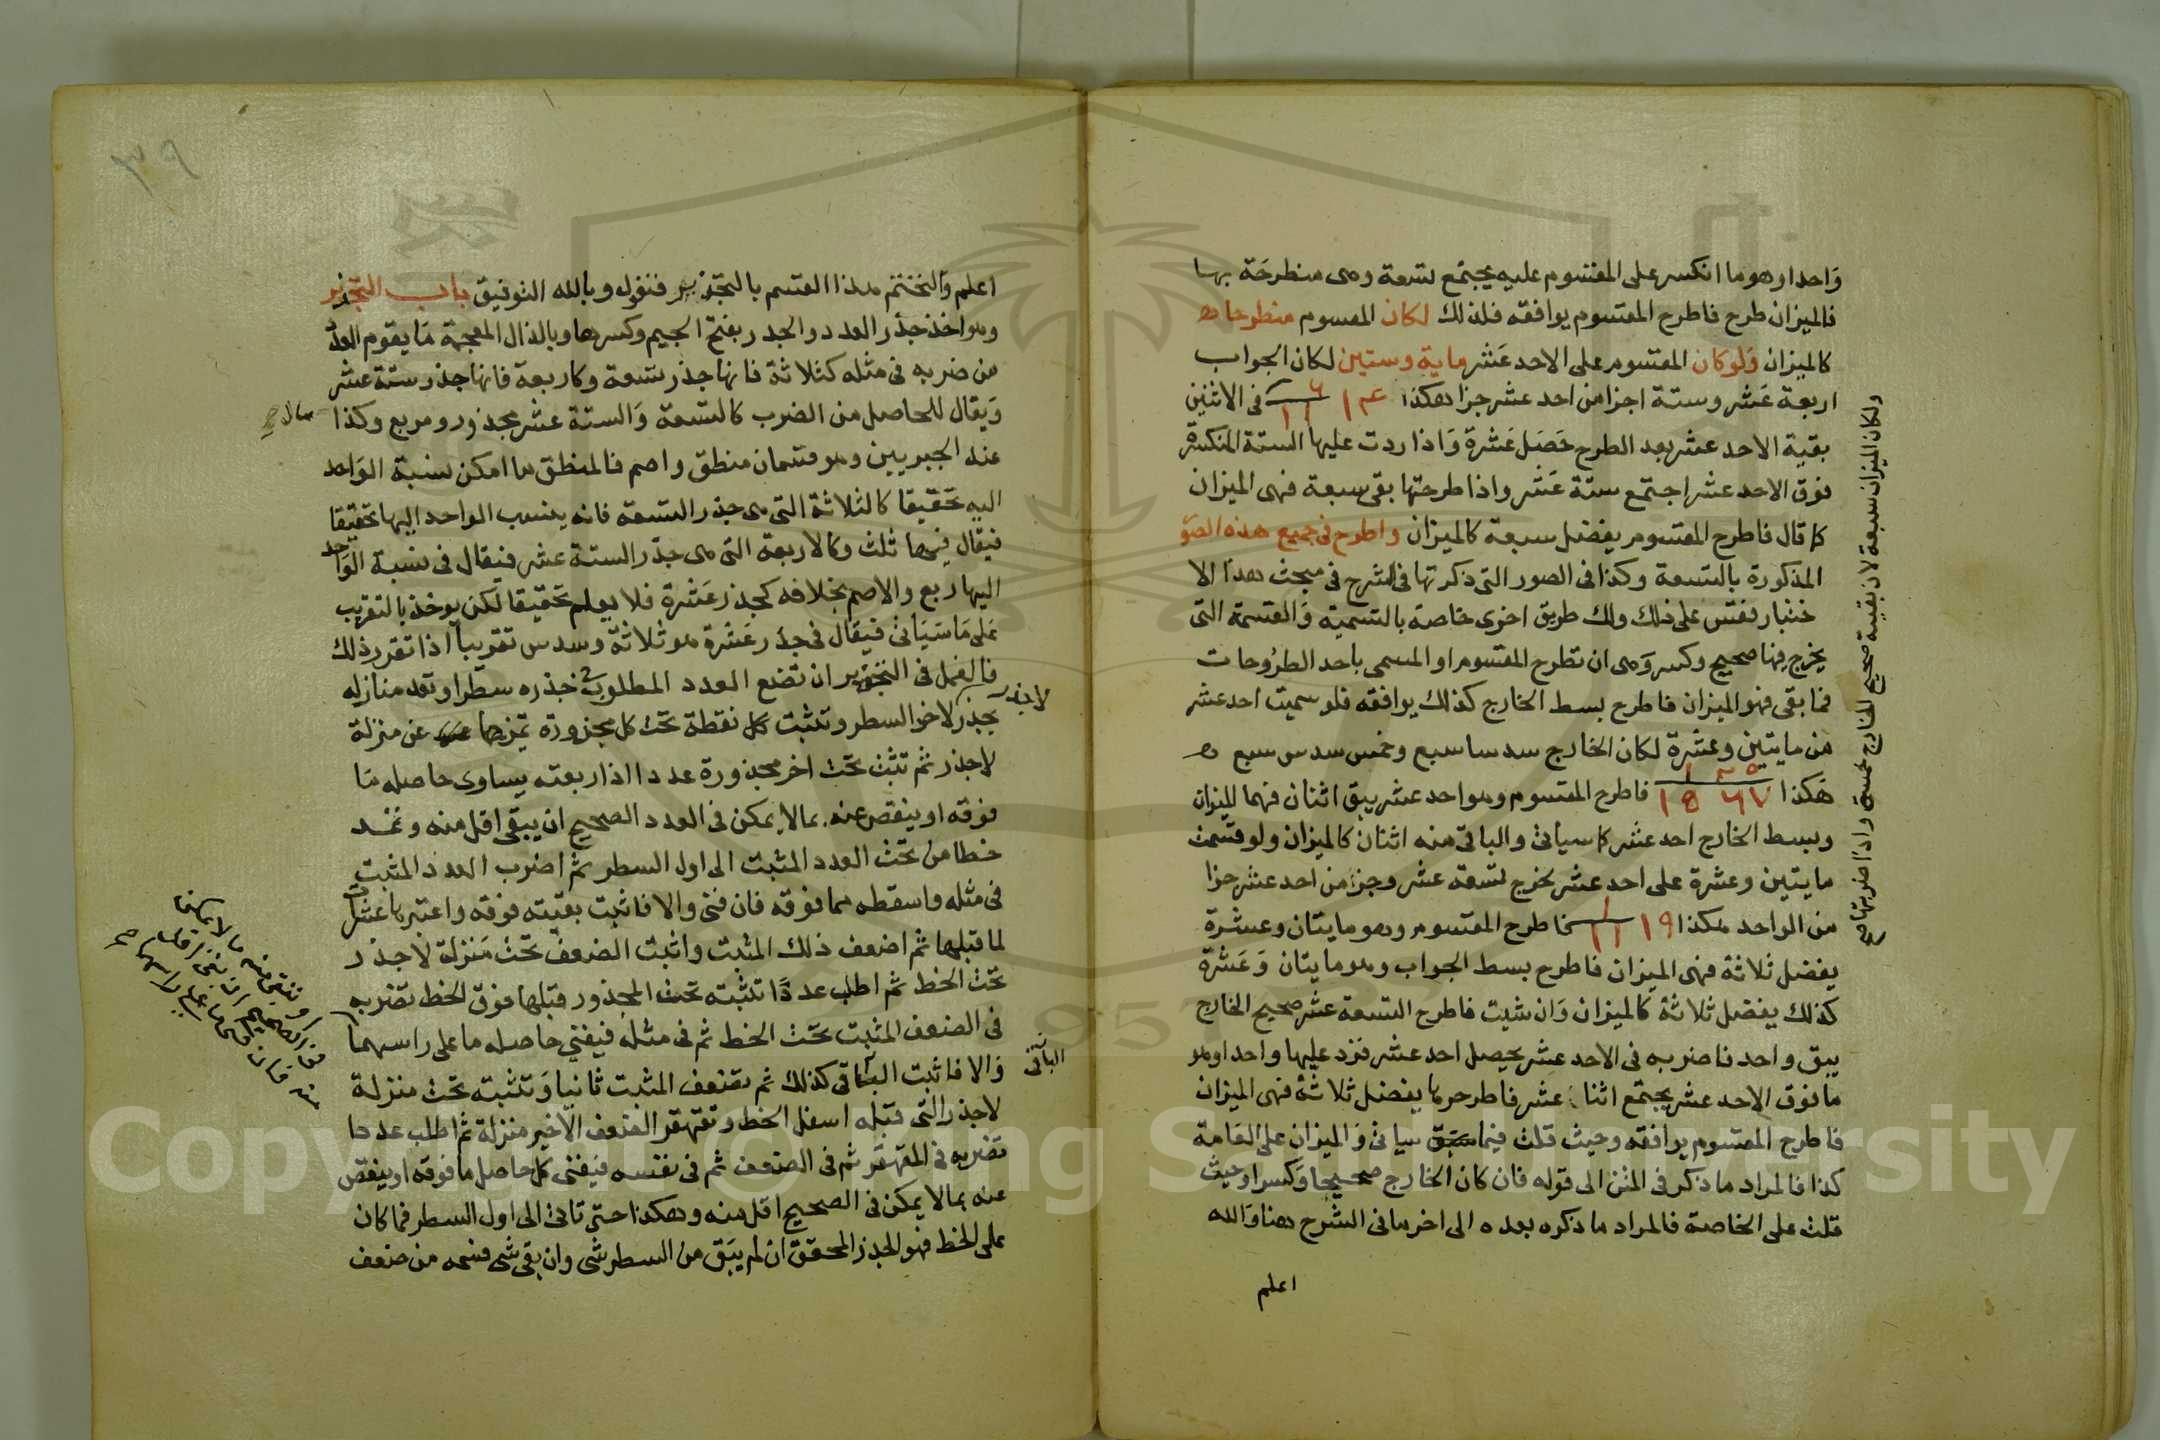 واحدا وهو ما انكسر على المقسوم عليه يجتمع تسعة وهى منطرحة بها
فالميزان طرح فاطرح المقسوم يوافقه فلذلك لكان المقسوم منطرحا
كالميزان ولو كان المقسوم على الاحد عشر ماية وستين لكان الجواب
اربعة عشر وستة اجزا من احد عشر جزا هكذا ١٤ ٦ ١١ فى الاثنين
بقية الاحد عشر بعد الطرح حصل عشرة واذا زدت عليها الستة المنكسرة
فوق الاحد عشر اجتمع ستة عشر واذا طرحتها بقى سبعة فهى الميزان
كما قال فاطرح المقسوم يفضل سبعة كالميزان واطرح فى جميع هذه الصور
المذكورة بالتسعة وكذا فى الصور التى ذكرتها فى الشرح فى مبحث هذا الا
ختبار فقس على ذلك ولك طريق اخرى خاصة بالتسمية والقسمة التى
يخرج فيها صحيح وكسر وهى ان تطرح المقسوم او المسمى باحد الطروحات
فما بقى فهو الميزان فاطرح بسط الخارج كذلك يوافقه فلو سميت احد عشر
من مايتين وعشرة لكان الخارج سدسا سبع وخمس سدس سبع
هكذا فاطرح المقسوم وهو احد عشر يبق اثنان فهما الميزان
وبسط الخارج احد عشر كما سياتى والباقى منه اثنان كالميزان ولو قسمت
مايتين وعشرة على احد عشر يخرج تسعة عشر وجزا من احد عشر جزا
من الواحد هكذا ١٩ ١ ١١ فاطرح المقسوم وهو مايتان وعشرة
يفضل ثلاثة فهى الميزان فاطرح بسط الجواب وهو مايتان وعشرة
كذلك يفضل ثلاثة كالميزان وان شيت فاطرح التسعة عشر صحيح الخارج
يبق واحد فاضربه فى الاحد عشر يحصل احد عشر فزد عليها واحدا وهو
ما فوق الاحد عشر يجتمع اثنا عشر فاطرحها يفضل ثلاثة فهى الميزان
فاطرح المقسوم يوافقه وحيث قلت فيما سبق سياتى والميزان على العامة
كذا فالمراد ما ذكر فى المتن الى قوله فان كان الخارج صحيحا وكسرا وحيث
قلت على الخاصة فالمراد ما ذكره بعده الى اخر ما فى الشرح هنا والله
اعلم
ولكان الميزان سبعة لان بقية صحيح الخارج خمسة واذا ضربتها صح
٣٩
اعلم ولنختم هذا القسم بالتجذير فنقول وبالله التوفيق باب التجذير
وهو اخذ جذر العدد والجذر بفتح الجيم وكسرها وبالذال المعجمة ما يقوم العدد
من ضربه فى مثله كثلاثة فانها جذر تسعة وكاربعة فانها جذر ستة عشر
ويقال للحاصل من الضرب كالتسعة والستة عشر مجذور ومربع وكذا
مال صح
عند الجبريين وهو قسمان منطق واصم فالمنطق ما امكن نسبة الواحد
اليه تحقيقا كالثلاثة التى هى جذر التسعة فانه ينسب الواحد اليها تحقيقا
فيقال فيها ثلث وكالاربعة التى هى جذر الستة عشر فيقال فى نسبة الواحد
اليها ربع والاصم بخلافه كجذر عشرة فلا يعلم تحقيقا لكن يوخذ بالتقريب
على ما سياتى فيقال فى جذر عشرة هو ثلاثة وسدس تقريبا اذا تقرر ذلك
فالعمل فى التجذير ان تضع العدد المطلوب جذره سطرا وتعد منازله
بجذر لاخر السطر وتثبت كل نقطة تحت كل مجذورة تميزها عن منزلة
لا جذر
لا جذر ثم تثبت تحت اخر مجذورة عددا اذا ربعته يساوى حاصله ما
فوقه او ينقص عنه بما لا يمكن فى العدد الصحيح ان يبقى اقل منه وتمد
خطا من تحت العدد المثبت الى اول السطر ثم اضرب العدد المثبت
فى مثله واسقطه مما فوقه فان فنى والا فاثبت بقيته فوقه واعتبرها عشرات
لما قبلها ثم اضعف ذلك المثبت واثبت الضعف تحت منزلة لا جذر
تحت الخط ثم اطلب عددا تثبته تحت المجذور قبلها فوق الخط تضربه
فى الضعف المثبت تحت الخط ثم فى مثله فيفنى حاصله ما على راسهما
والا فاثبت الباقى كذلك ثم تضعف المثبت ثانيا وتثبته تحت منزلة
الباقى
لا جذر التى قبله اسفل الخط وتقهقر الضعف الاخير منزلة ثم اطلب عددا
تضربه فى المقهقر ثم فى الضعف ثم فى نفسه فيفنى كل حاصل ما فوقه او ينقص
عنه بما لا يمكن فى الصحيح اقل منه وهكذا حتى تاتى الى اول السطر فما كان
على الخط فهو الجذر المحقق ان لم يبق من السطر شى وان بقى شى فسمه من ضعف
او تنقص منه ما لا يمكن